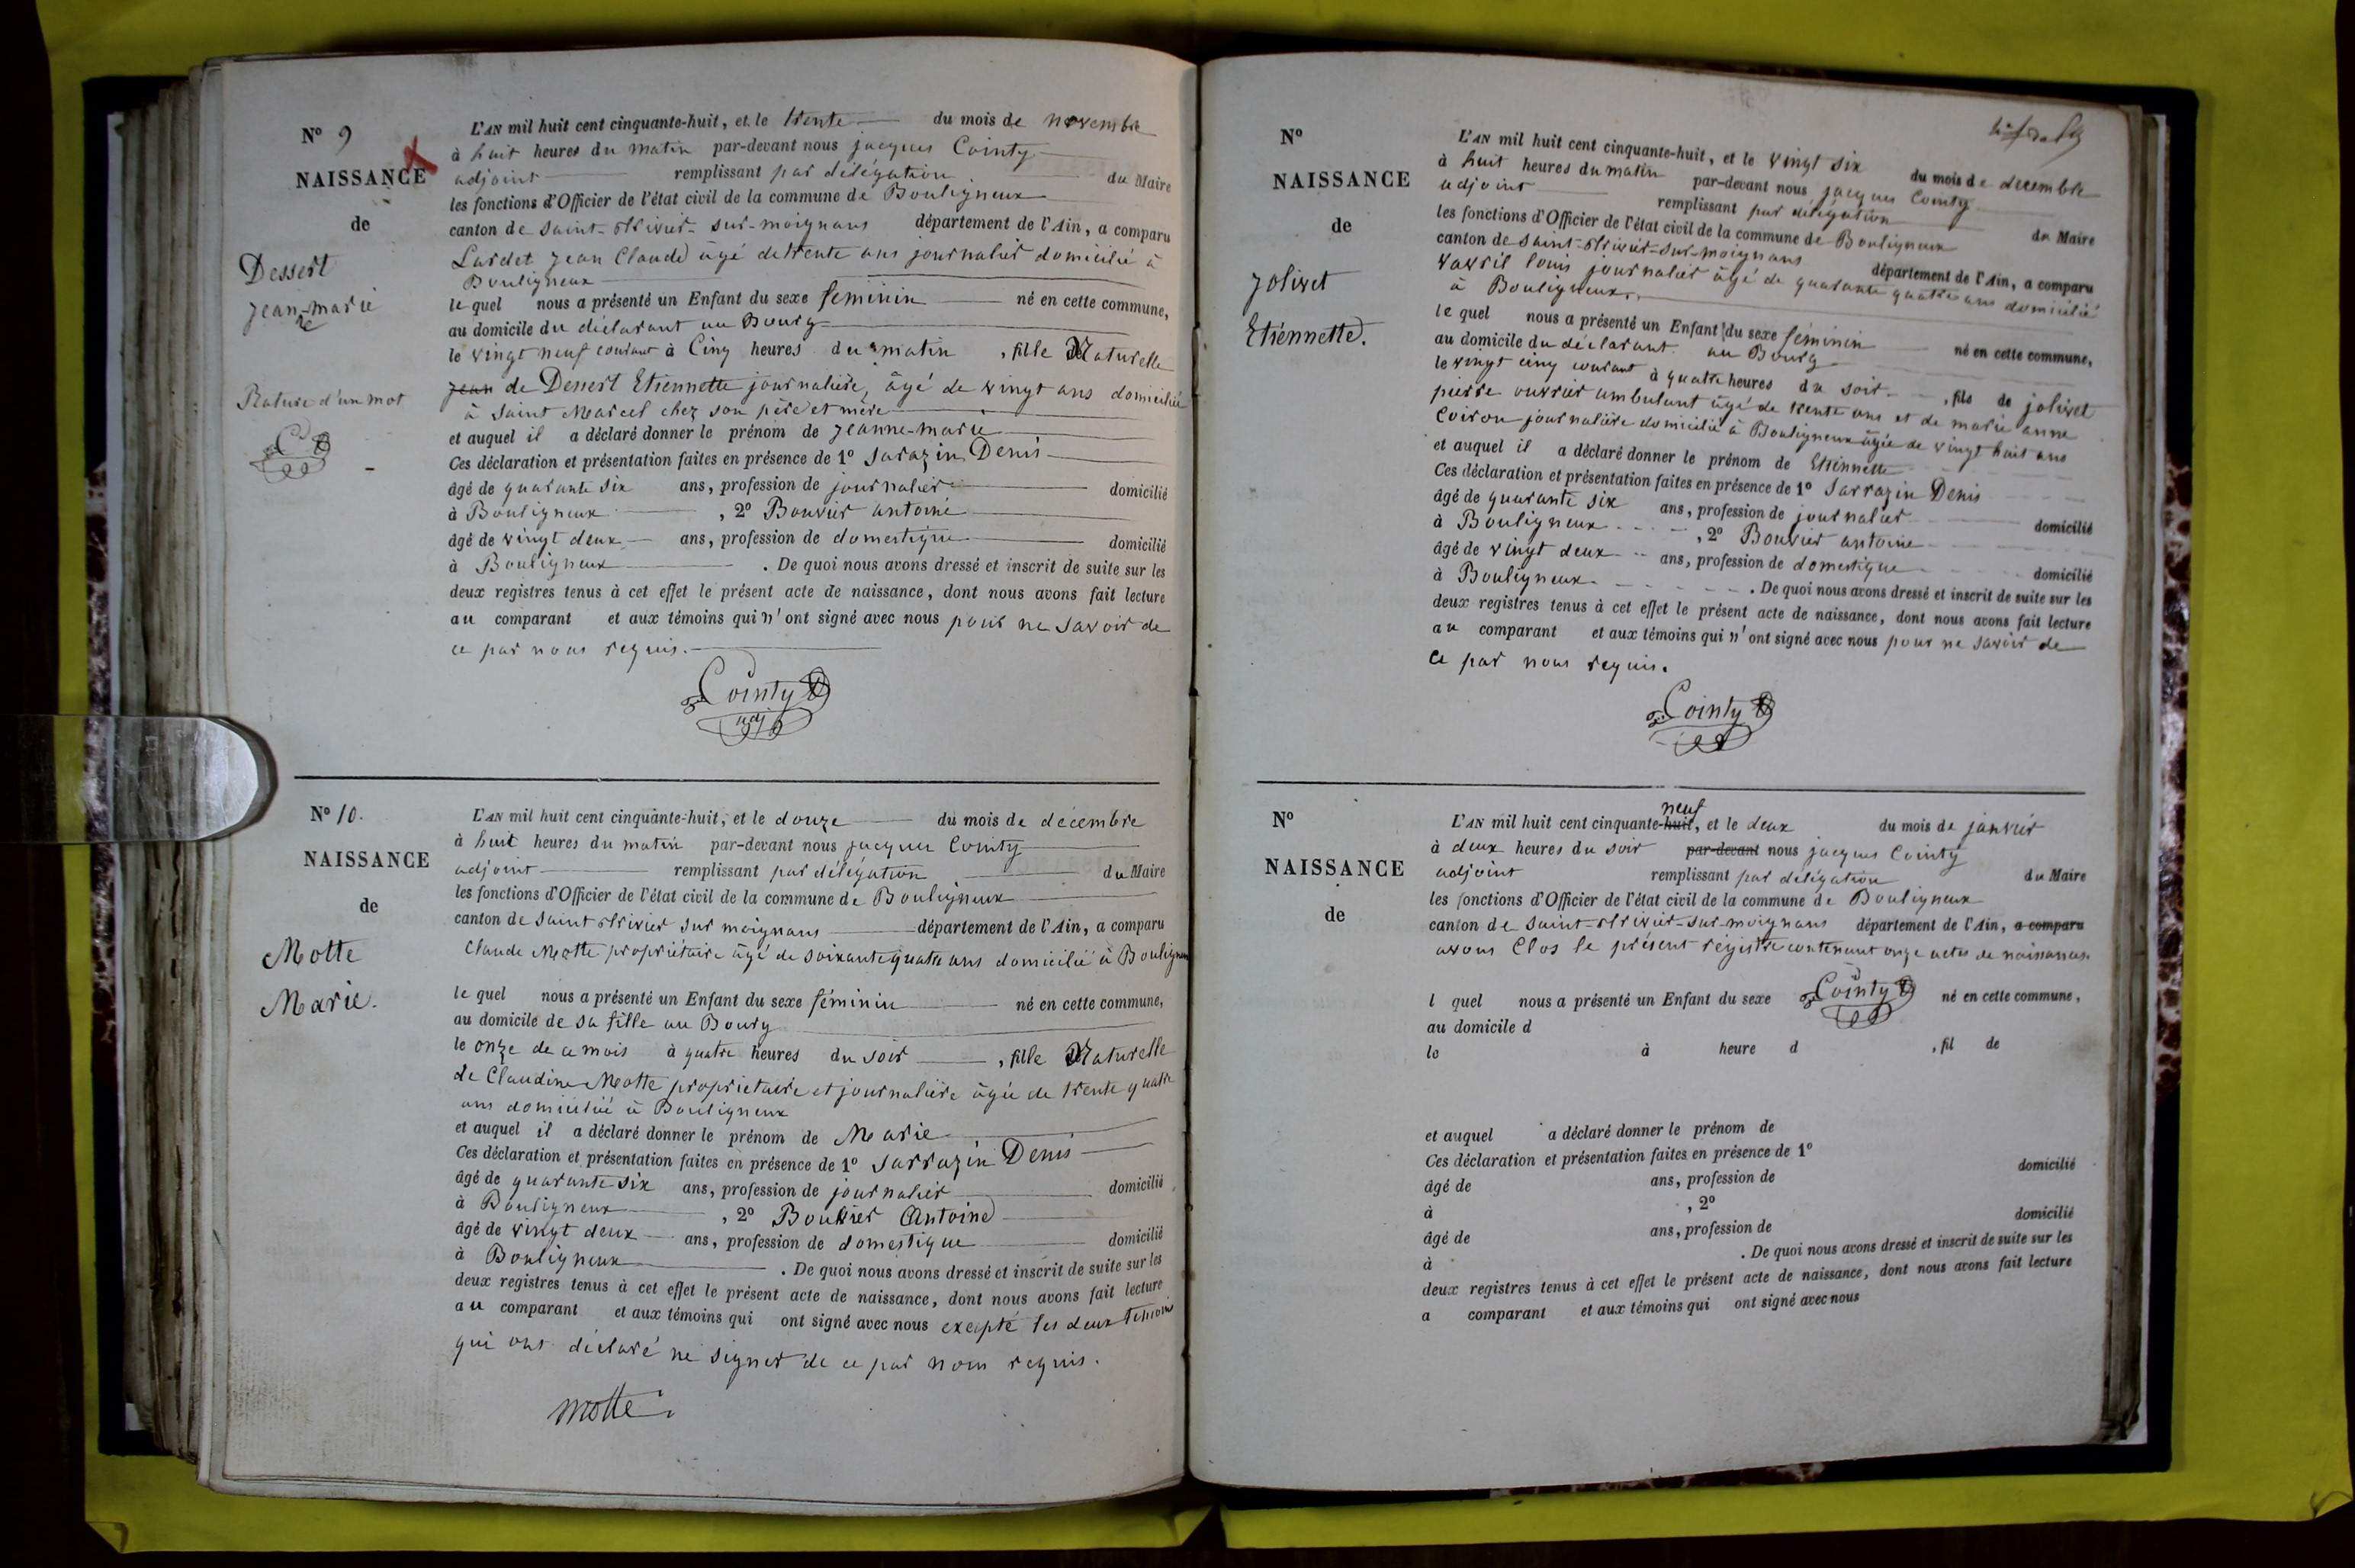 N° 9
NAISSANCE
de
Dessert
Jean-marie
ne
Rature d'un mot
L'AN mil huit cent cinquante-huit, et le trente du mois de novembre
à huit heures du matin par-devant nous jacques Cointy
adjoint remplissant par délégation du Maire
les fonctions d'Officier de l'état civil de la commune de Bouligneux
canton de saint-trivier-sur-moignans département de l'Ain, a comparu
Lardet jean Claude âgé de trente ans journalier domicilié à
Bouligneux
le quel nous a présenté un Enfant du sexe feminin né en cette commune,
au domicile du déclarant au Bourg
le vingt neuf courant à Cinq heures du matin, fille Naturelle
jean de Dessert Etiennette journalière, âgé de vingt ans domiciliée
à saint Marcel chez son père et mère
et auquel il a déclaré donner le prénom de jeanne-marie
Ces déclaration et présentation faites en présence de 1° sarazin Denis
âgé de quarante six ans, profession de journalier domicilié
à Bouligneux, 2° Bouvier antoine
âgé de vingt deux ans, profession de domestique domicilié
à Bouligneux. De quoi nous avons dressé et inscrit de suite sur les
deux registres tenus à cet effet le présent acte de naissance, dont nous avons fait lecture
au comparant et aux témoins qui n'ont signé avec nous pour ne savoir de
ce par nous requis.
Cointy
adj
N° 10.
NAISSANCE
de
Motte
Marie.
L'AN mil huit cent cinquante-huit, et le douze du mois de décembre
à huit heures du matin par-devant nous jacques Cointy
adjoint remplissant par délégation du Maire
les fonctions d'Officier de l'état civil de la commune de Bouligneux
canton de saint trivier sur moignans département de l'Ain, a comparu
Claude Motte propriétaire âgé de soixante quatre ans domicilié à Bouligneux
le quel nous a présenté un Enfant du sexe féminin né en cette commune,
au domicile de sa fille au Bourg
le onze de ce mois à quatre heures du soir, fille Naturelle
de Claudine Motte propriétaire et journalière âgée de trente quatre
ans domiciliée à Bouligneux
et auquel il a déclaré donner le prénom de Marie
Ces déclaration et présentation faites en présence de 1° sarrazin Denis
âgé de quarante six ans, profession de journalier domicilié
à Bouligneux, 2° Bouvier Antoine
âgé de vingt deux ans, profession de domestique domicilié
à Bouligneux. De quoi nous avons dressé et inscrit de suite sur les
deux registres tenus à cet effet le présent acte de naissance, dont nous avons fait lecture
au comparant et aux témoins qui ont signé avec nous excepté les deux témoins
qui ont déclaré ne signer de ce par nous requis.
motte
N°
NAISSANCE
de
jolivet
Etiennette.
L'AN mil huit cent cinquante-huit, et le vingt six du mois de decembre
à huit heures du matin par-devant nous jacques Cointy
adjoint remplissant par délégation du Maire
les fonctions d'Officier de l'état civil de la commune de Bouligneux
canton de saint-trivier-sur-moignans département de l'Ain, a comparu
vavril louis journalier âgé de quarante quatre ans domicilié
à Bouligneux.
le quel nous a présenté un Enfant du sexe féminin né en cette commune,
au domicile du déclarant au Bourg
le vingt cinq courant à quatre heures du soir, fils de jolivet
pierre ouvrier ambulant âgé de trente ans et de marie anne
Coiron journalière domicilié à Bouligneux âgée de vingt huit ans
et auquel il a déclaré donner le prénom de Etiennette
Ces déclaration et présentation faites en présence de 1° sarrazin Denis
âgé de quarante six ans, profession de journalier domicilié
à Bouligneux, 2° Bouvier antoine
âgé de vingt deux ans, profession de domestique domicilié
à Bouligneux. De quoi nous avons dressé et inscrit de suite sur les
deux registres tenus à cet effet le présent acte de naissance, dont nous avons fait lecture
au comparant et aux témoins qui n'ont signé avec nous pour ne savoir de
ce par nous requis.
Cointy
N°
NAISSANCE
de
neuf
L'AN mil huit cent cinquante-huit, et le deux du mois de janvier
à deux heures du soir par-devant nous jacques Cointy
adjoint remplissant par délégation du Maire
les fonctions d'Officier de l'état civil de la commune de Bouligneux
canton de saint-trivier-sur-moignans département de l'Ain, a comparu
avons Clos le présent régistre contenant onze actes de naissances
l quel nous a présenté un Enfant du sexe né en cette commune,
Cointy
au domicile d
le à heure d, fil de
et auquel a déclaré donner le prénom de
Ces déclaration et présentation faites en présence de 1°
âgé de ans, profession de domicilié
à, 2°
âgé de ans, profession de domicilié
à. De quoi nous avons dressé et inscrit de suite sur les
deux registres tenus à cet effet le présent acte de naissance, dont nous avons fait lecture
a comparant et aux témoins qui ont signé avec nous